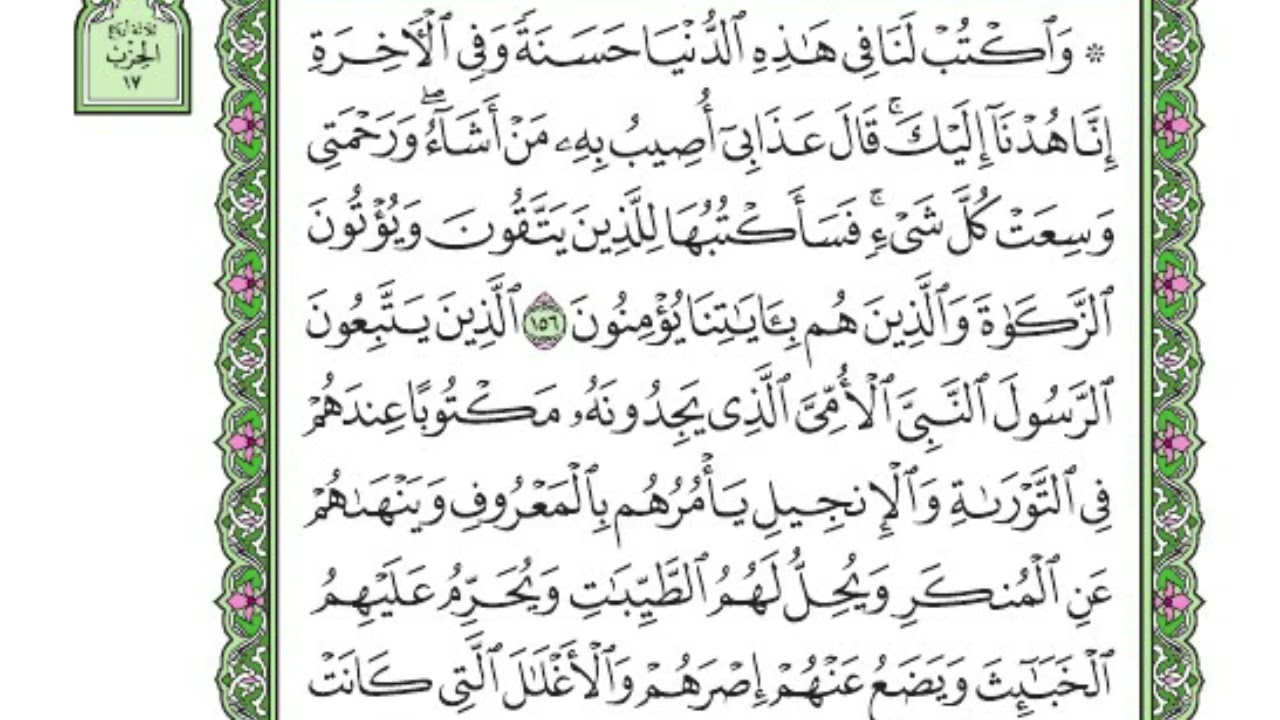 ثلاثة أرباع
الحزب
١٧
۞ وَٱكۡتُبۡ لَنَا فِي هَٰذِهِ ٱلدُّنۡيَا حَسَنَةٗ وَفِي ٱلۡأٓخِرَةِ
إِنَّا هُدۡنَآ إِلَيۡكَۚ قَالَ عَذَابِيٓ أُصِيبُ بِهِۦ مَنۡ أَشَآءُۖ وَرَحۡمَتِي
وَسِعَتۡ كُلَّ شَيۡءٖۚ فَسَأَكۡتُبُهَا لِلَّذِينَ يَتَّقُونَ وَيُؤۡتُونَ
ٱلزَّكَوٰةَ وَٱلَّذِينَ هُم بِـَٔايَٰتِنَا يُؤۡمِنُونَ ١٥٦ ٱلَّذِينَ يَتَّبِعُونَ
ٱلرَّسُولَ ٱلنَّبِيَّ ٱلۡأُمِّيَّ ٱلَّذِي يَجِدُونَهُۥ مَكۡتُوبًا عِندَهُمۡ
فِي ٱلتَّوۡرَىٰةِ وَٱلۡإِنجِيلِ يَأۡمُرُهُم بِٱلۡمَعۡرُوفِ وَيَنۡهَىٰهُمۡ
عَنِ ٱلۡمُنكَرِ وَيُحِلُّ لَهُمُ ٱلطَّيِّبَٰتِ وَيُحَرِّمُ عَلَيۡهِمُ
ٱلۡخَبَٰٓئِثَ وَيَضَعُ عَنۡهُمۡ إِصۡرَهُمۡ وَٱلۡأَغۡلَٰلَ ٱلَّتِي كَانَتۡ